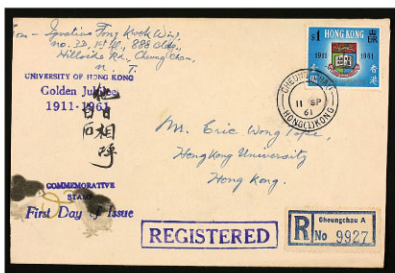 From - Ignatius Tong Kwok Wai,
no. 32, 1st fl., 888 Bldg.,
Hillside Rd., Cheung Chau,
N. T.
UNIVERSITY OF HONG KONG
Golden Jubilee
1911-1961
COMMEMORATIVE
STAMP
First Day of Issue
$1 HONG KONG
1911 1961
香港
CHEUNG CHAU
11 SP
61
HONG KONG
Mr. Eric Wong
HongKong University
Hong Kong.
REGISTERED
R Cheungchau A
No 9927